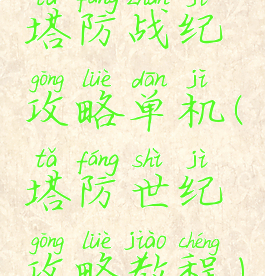 tǎ fáng zhàn jì
塔防战纪
gōng lüè dān jī
攻略单机(
tǎ fáng shì jì
塔防世纪
gōng lüè jiào chéng
攻略教程)